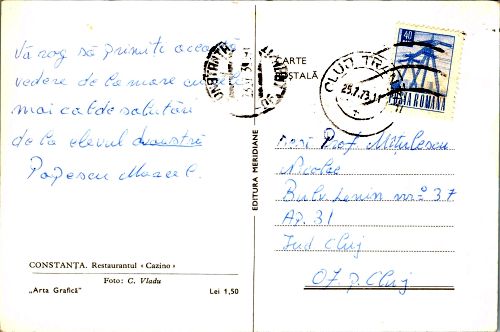 Vă rog să primiți această
vedere de la mare cu cele
mai calde salutări
de la elevul
Popescu Marcel.
CONSTANȚA. Restaurantul «Cazino»
Foto: C. Vladu
„Arta Grafică”
Lei 1,50
EDITURA MERIDIANE
CARTE
POȘTALĂ
40
POȘTA ROMÂNA
CLUJ
25.7.73
Prof Mețulescu
Nicolae
Bulv. Lenin nr 37
Ap. 31
Jud Cluj
Of. p. Cluj